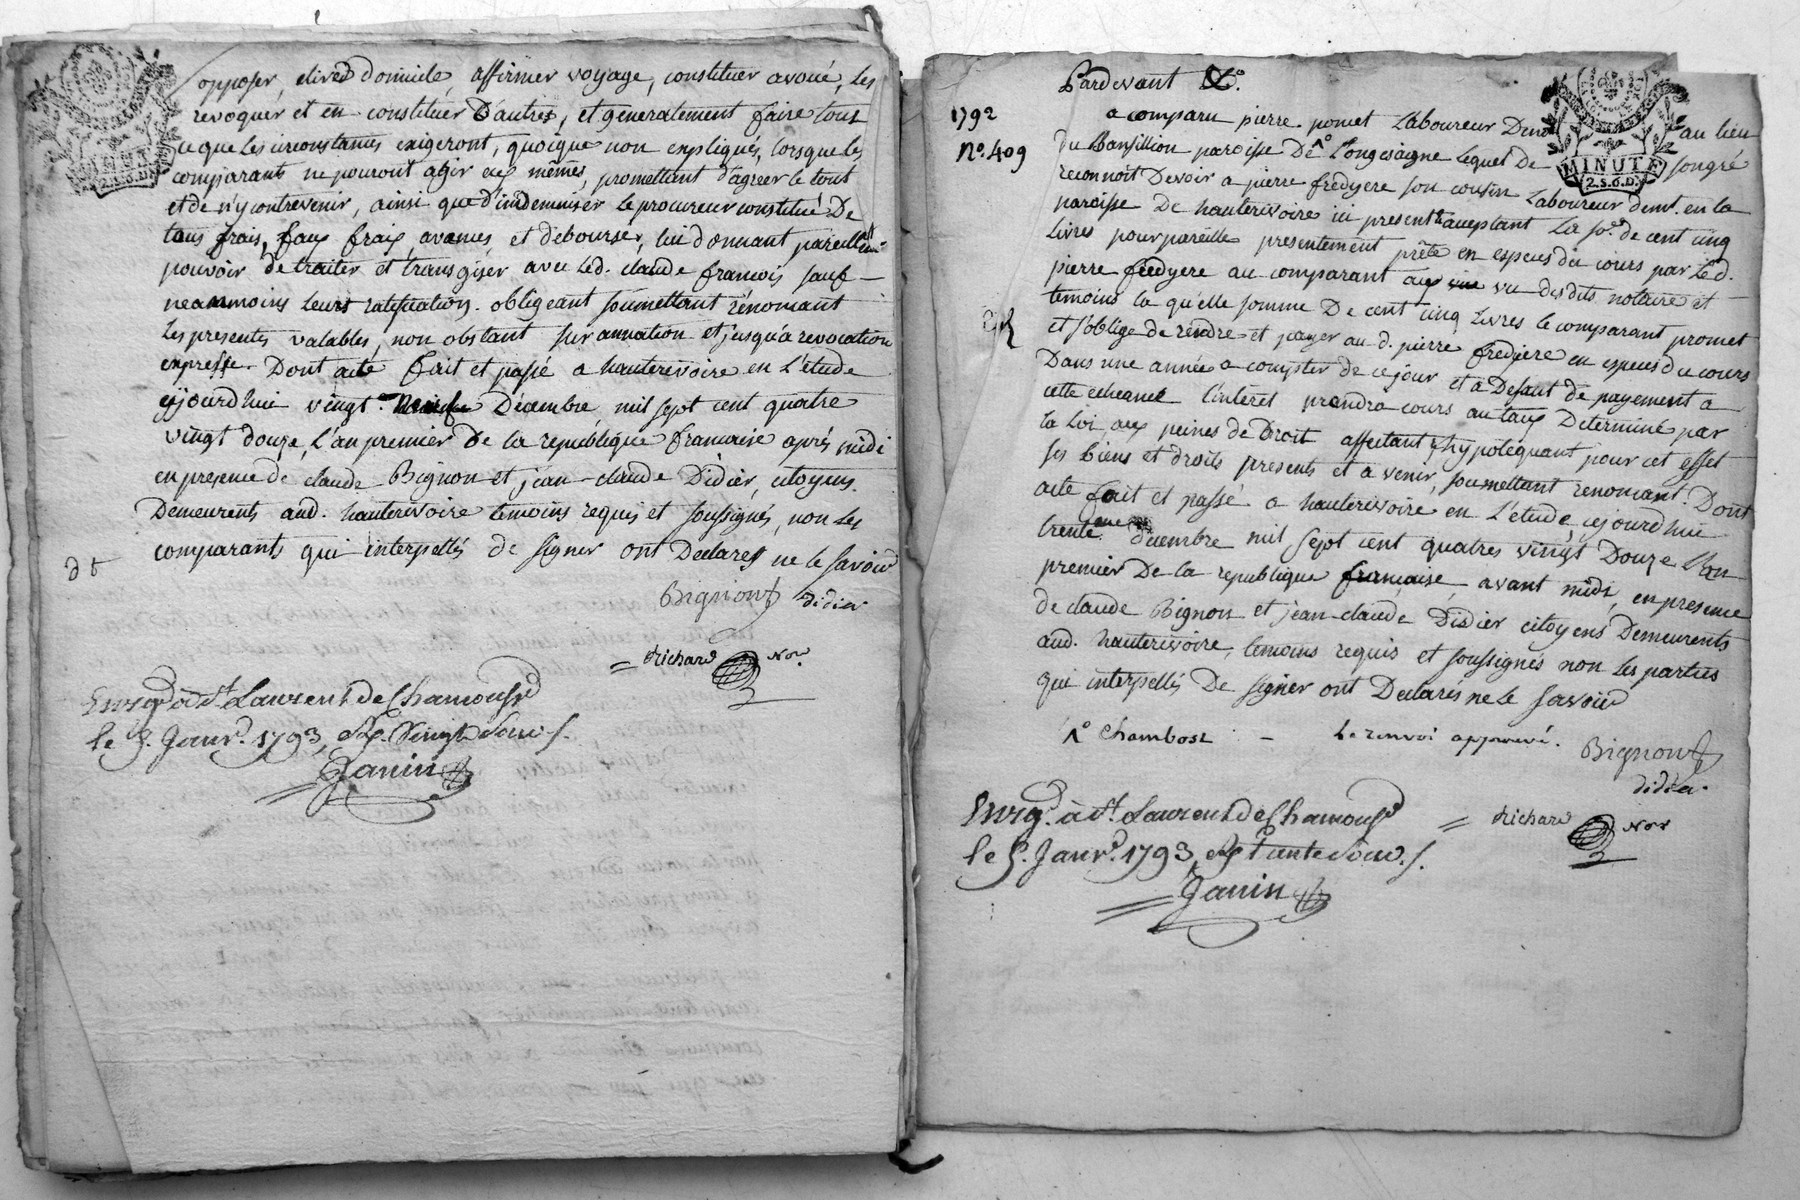 opposer, elire domicile, affirmer voyage, constituer avoué, les
revoquer et en constituer d'autres, et generalement faire tout
ce que les circonstances exigeront, quoique non expliqués, lorsque les
comparants ne pouront agir eux mêmes, promettant d'agreer le tout
et de n'y contrevenir, ainsi que d'indemniser le procureur constitué De
tous frais, faux frais, avances, et debourser, lui donnant pareillem.
pouvoir de traiter et transiger avec led. claude francois sauf
neanmoins leurs ratification. obligeant soumettant rénonant
les presentes valables, non obstant surannation et jusqu'a revocation
expresse. Dont acte fait et passé a hauterivoire en L'étude
cejourd'hui vingt Décembre mil sept cent quatre
vingt douze, L'an premier De la republique francaise aprés midi
en presence de claude Bignon et jean-claude Didier, citoyens
Demeurents aud. hauterivoire temoins requis et soussignés, non les
comparants qui interpellés de signer ont Declarés ne le savoir
Bignon didier
Richard Nore
Enregé à St Laurent de Chamousst
le 5. Janvr. 1793, Vingt Sous.
Janin
MINUTE
2.S.6.D.
Pardevant &c.
1792
a comparu pierre pomet Laboureur Demt au lieu
N°. 409
du Bansillion paroisse De ^ Longesaigne lequel De son gré
reconnoit Devoir a pierre fredyere son cousin Laboureur demt. en la
paroisse De hauterivoire ici present & acceptant La so.e de cent cinq
Livres pour pareille presentement prêté en especes du cours par led.
pierre fredyere au comparant au vu desdits notaire et
temoins la qu'elle somme De cent cinq Livres le comparant promet
et s'oblige de rendre et payer au d. pierre fredyere en especes du cours
Dans une année a compter de ce jour et a Defaut de payement a
cette echeance l'intéret prendra cours au taux Determiné par
la Loi aux peines de Droit affectant & hypotéquant pour cet effet
ses biens et droits presents et a venir, soumettant renonant. Dont
acte fait et passé a hauterivoire en L'étude, cejourd'hui
trente decembre mil sept cent quatres vingt Douze L'an
premier De la republique francaise, avant midi, en presence
de claude Bignon et jean-claude Didier citoyens Demeurents
aud. hauterivoire, temoins requis et soussignés non les parties
qui interpellés De signer ont Declarés ne le savoir
^° Chambost - Le renvoi approuvé.
Bignon
didier
Richard Nore
Enregé. à St. Laurent de Chamousst
le 5. Janvr. 1793, trente Sous.
Janin
MINUTE
2.S.6.D.